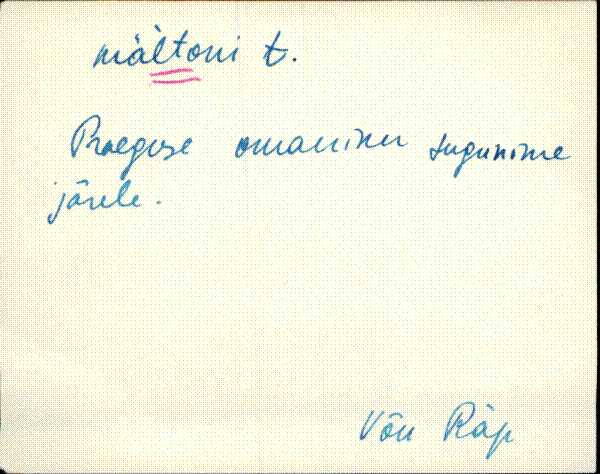 mältoni t.
Praeguse omaniku sugunime
järele.
Võn Räp